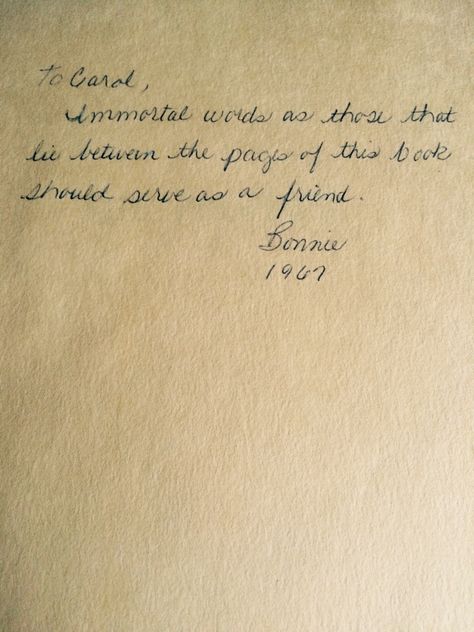 To Carol,
Immortal words as those that
lie between the pages of this book
should serve as a friend.
Bonnie
1967